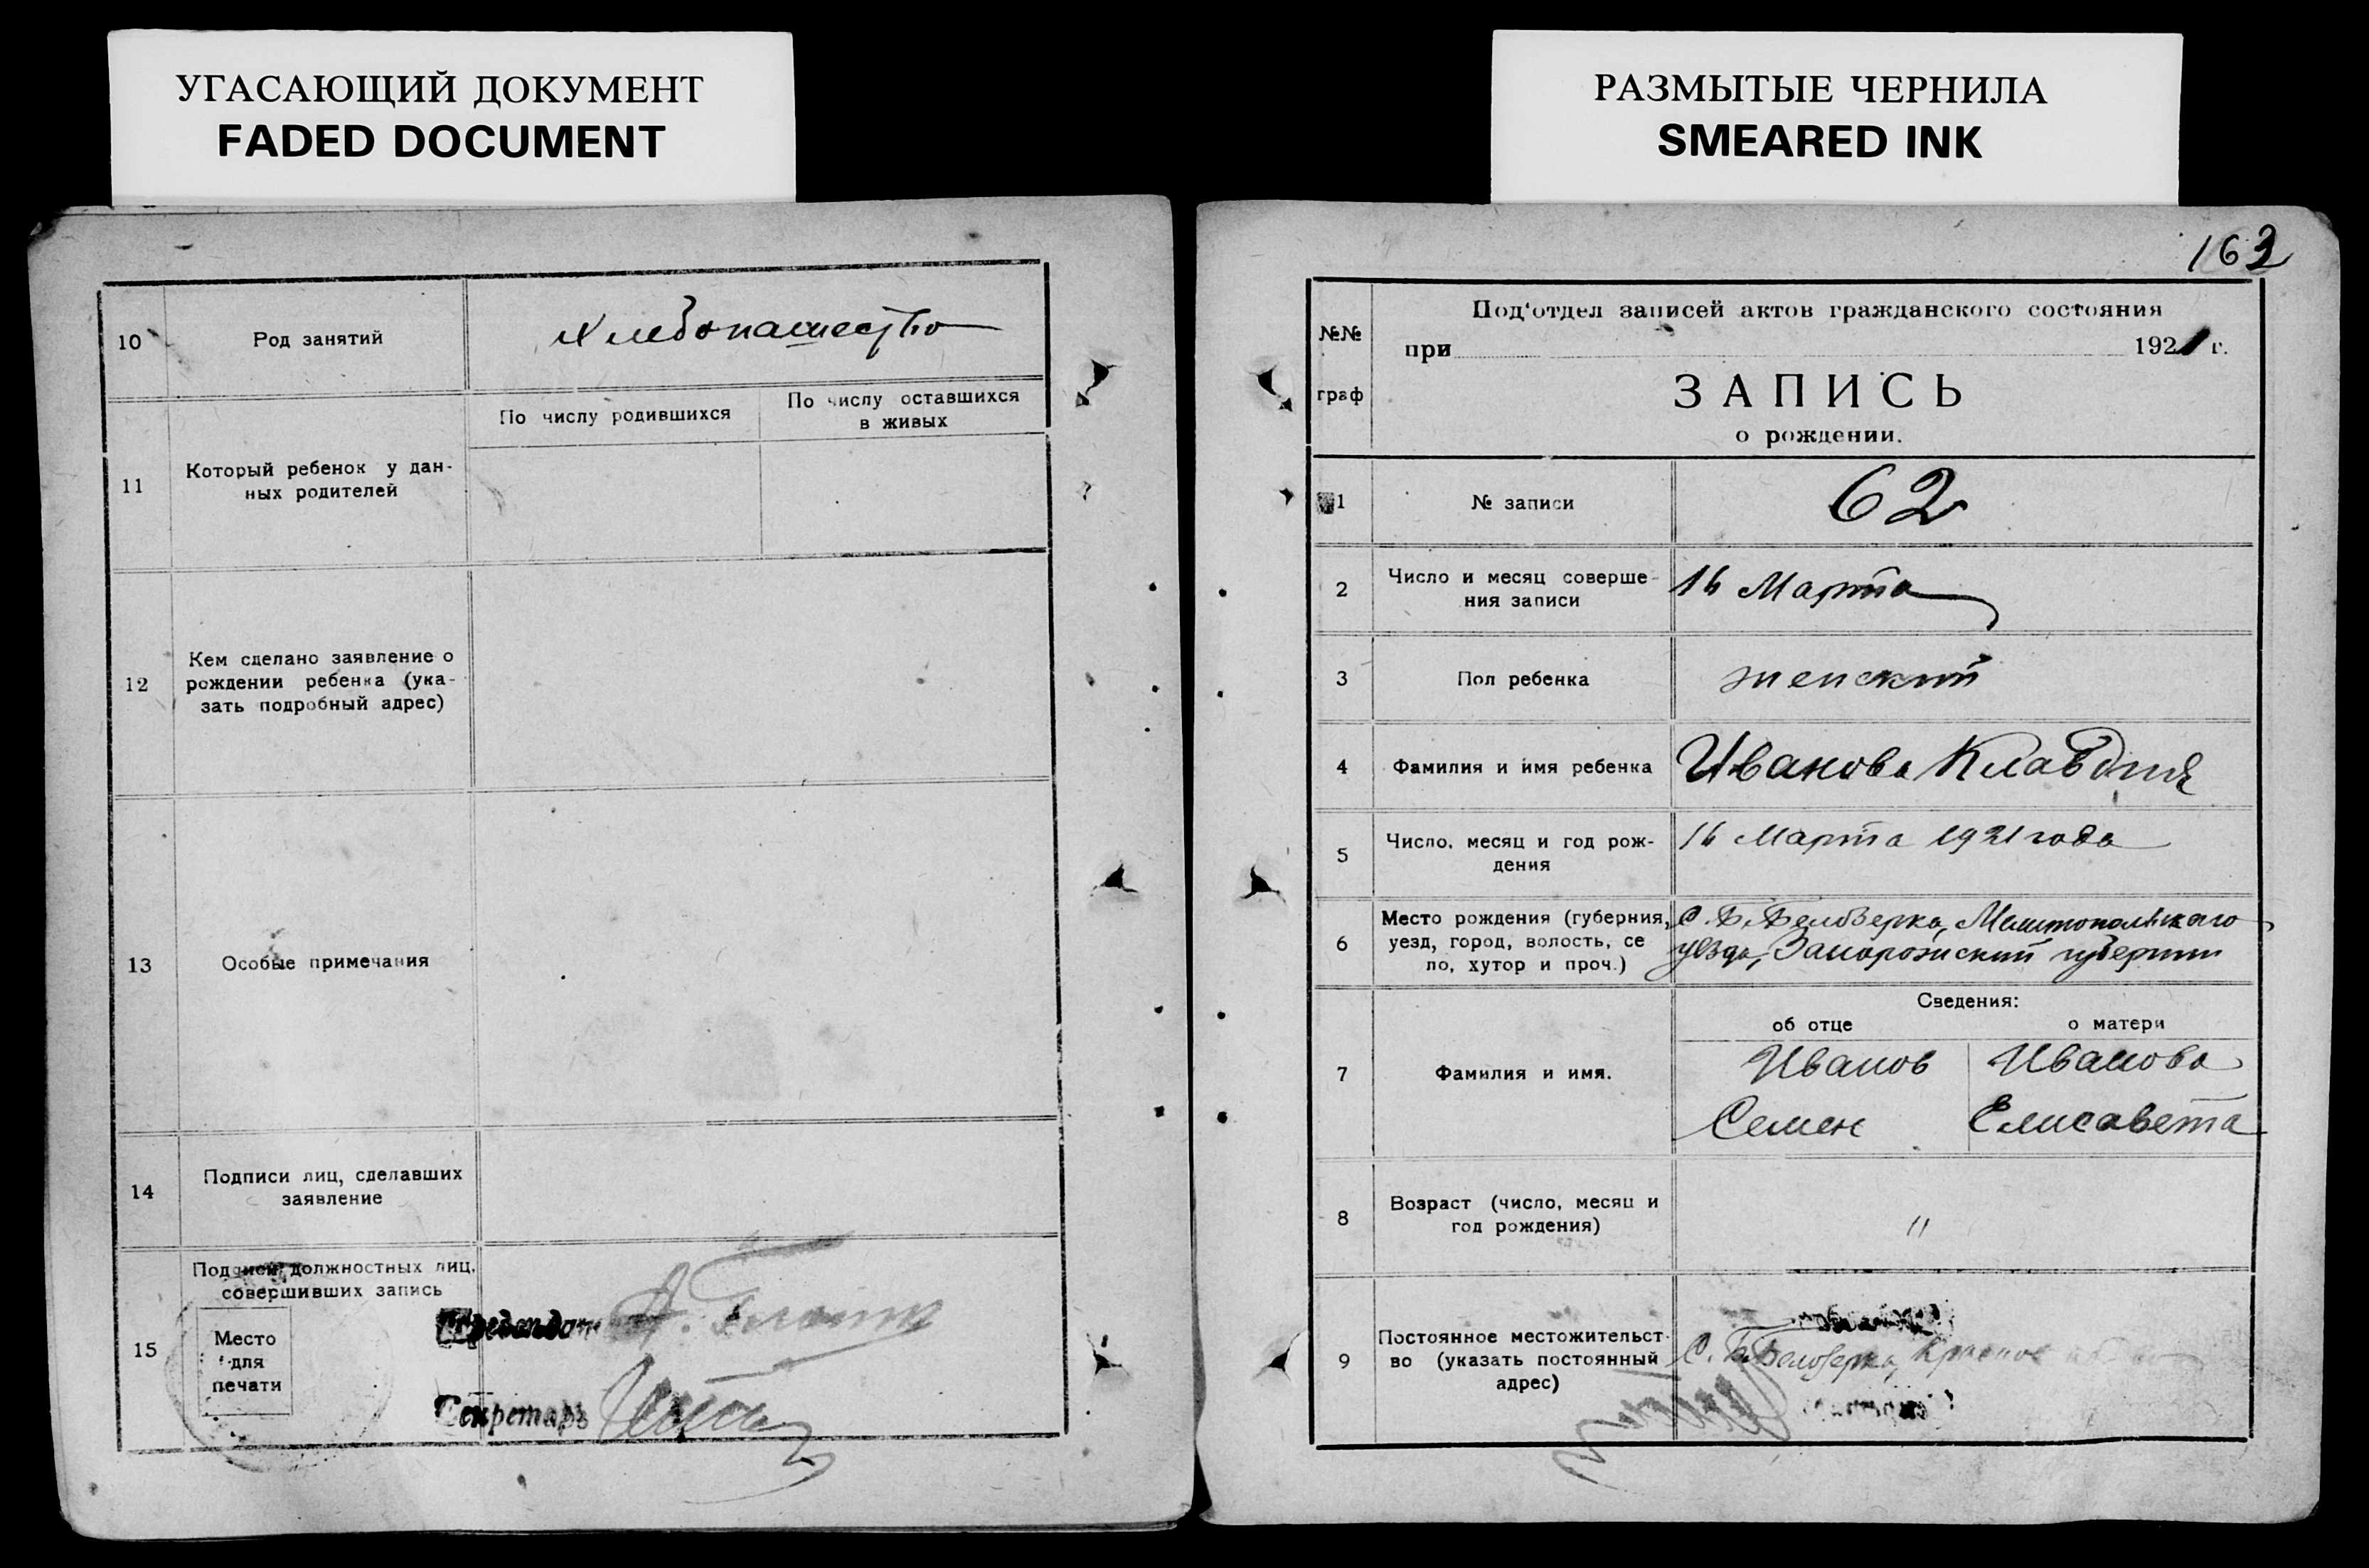 УГАСАЮЩИЙ ДОКУМЕНТ
FADED DOCUMENT
10
Род занятий
Хлебопашество
11
Который ребенок у дан-
ных родителей
По числу родившихся
По числу оставшихся
в живых
12
Кем сделано заявление о
рождении ребенка (ука-
зать подробный адрес)
13
Особые примечания
14
Подписи лиц, сделавших
заявление
15
Подписи должностных лиц,
совершивших запись
Место
для
печати
Секретарь
РАЗМЫТЫЕ ЧЕРНИЛА
SMEARED INK
163
№№
граф
Под'отдел записей актов гражданского состояния
при 1921 г.
ЗАПИСЬ
о рождении.
1
№ записи
62
2
Число и месяц соверше-
ния записи
16 Марта
3
Пол ребенка
женский
4
Фамилия и имя ребенка
Иванова Клавдия
5
Число, месяц и год рож-
дения
16 Марта 1921 года
6
Место рождения (губерния,
уезд, город, волость, се
ло, хутор и проч.)
С. Б. Белозерка, Мелитопольскаго
уезда, Запорожский губернии
Сведения:
об отце
о матери
7
Фамилия и имя.
Иванов
Семен
Иванова
Елисавета
8
Возраст (число, месяц и
год рождения)
"
9
Постоянное местожительст-
во (указать постоянный
адрес)
С. Б. Белозерка,